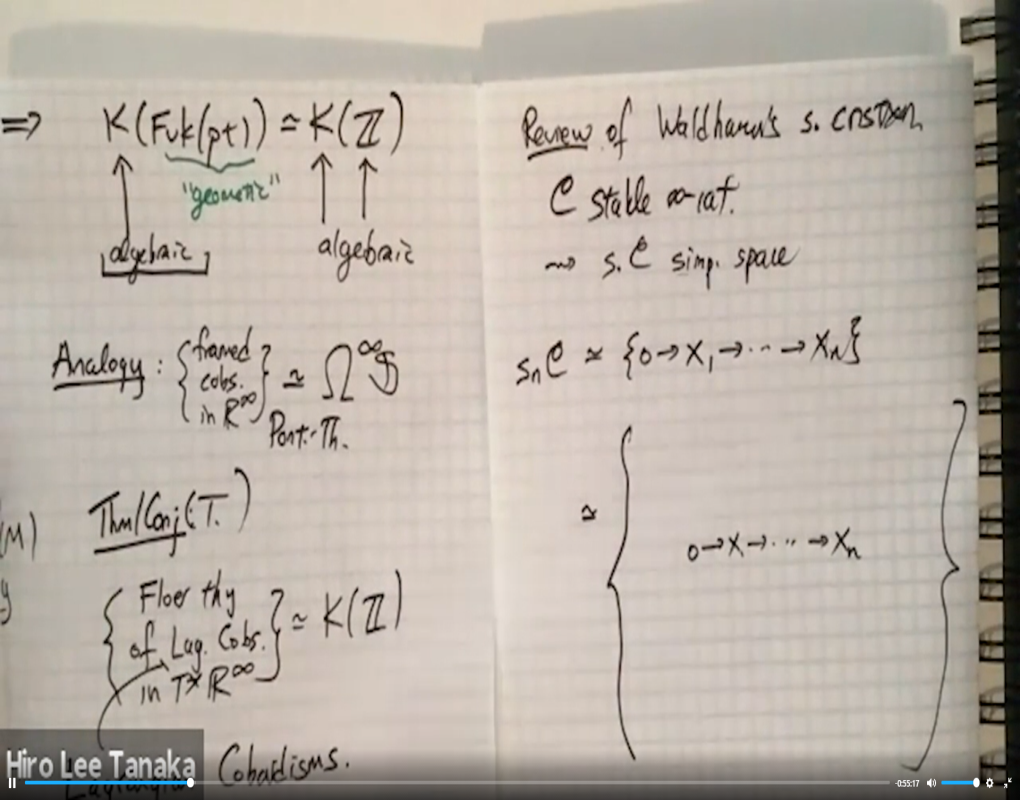 ⇒ K(Fuk(pt)) ≃ K(ℤ)
"geometric"
algebraic algebraic
Analogy: { framed
cobs.
in ℝ^∞ } ≃ Ω^∞ 𝕊
Pont.-Th.
Thm/Conj(T.)
{ Floer thy
of Lag. Cobs.
in T*ℝ^∞ } ≃ K(ℤ)
Cobordisms.
(M)
y
Review of Waldhausen's s. cnstrn.
C stable ∞-cat.
⇝ s.C simp. space
sₙC ≃ {0→X₁→···→Xₙ}
≃ { 0→X→···→Xₙ }
Hiro Lee Tanaka
-0:55:17